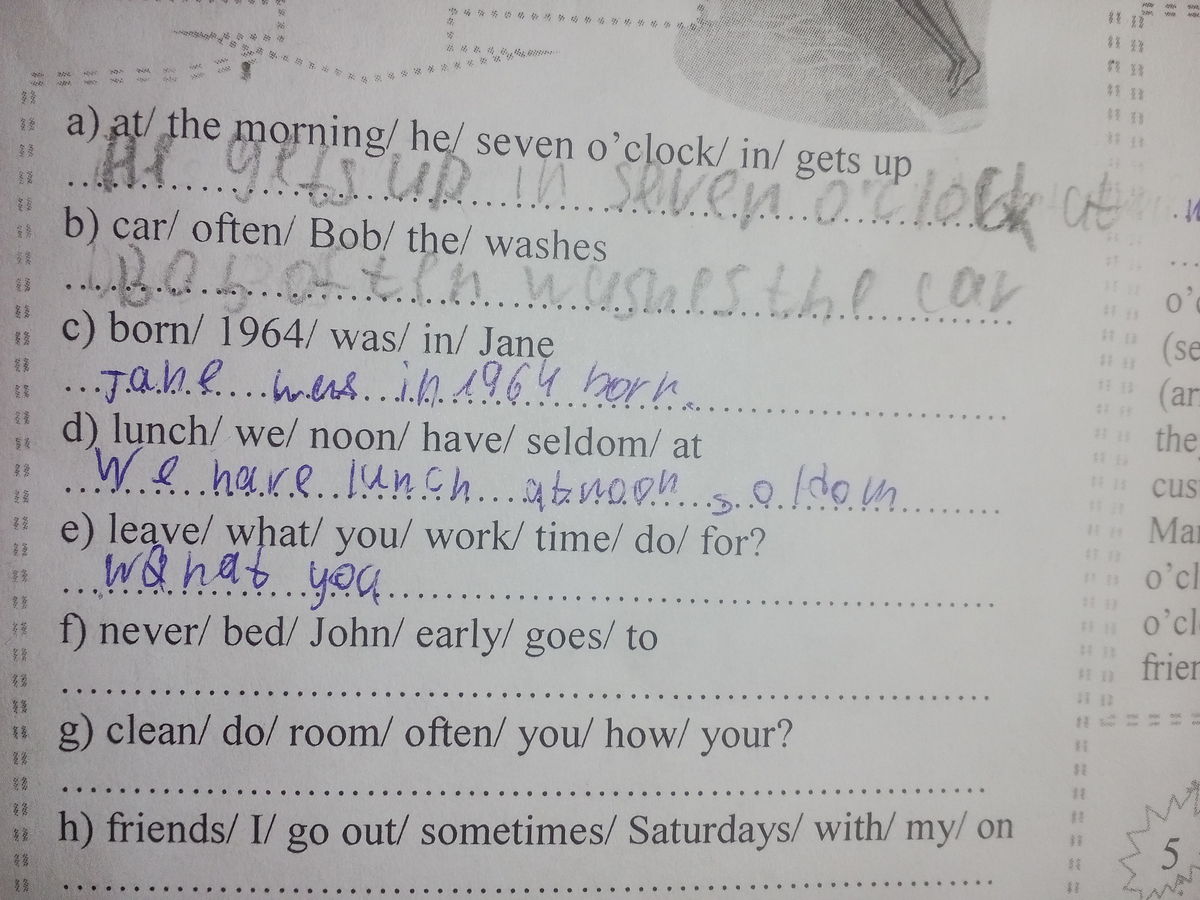 a) at/ the morning/ he/ seven o'clock/ in/ gets up
He gets up in seven o'clock at
b) car/ often/ Bob/ the/ washes
Bob often washes the car
c) born/ 1964/ was/ in/ Jane
Jane was in 1964 born.
d) lunch/ we/ noon/ have/ seldom/ at
We have lunch at noon soldom
e) leave/ what/ you/ work/ time/ do/ for?
what you
f) never/ bed/ John/ early/ goes/ to
g) clean/ do/ room/ often/ you/ how/ your?
h) friends/ I/ go out/ sometimes/ Saturdays/ with/ my/ on
(se
(ar
the
cus
Mar
o'cl
o'cl
frien
5